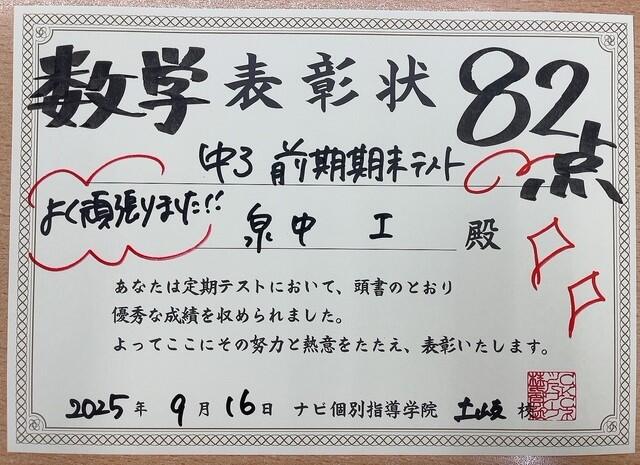 数学 表彰状 82点
中3 前期期末テスト
よく頑張りました!!
泉中 I 殿
あなたは定期テストにおいて、頭書のとおり
優秀な成績を収められました。
よってここにその努力と熱意をたたえ、表彰いたします。
2025年 9月16日 ナビ個別指導学院 土岐 校